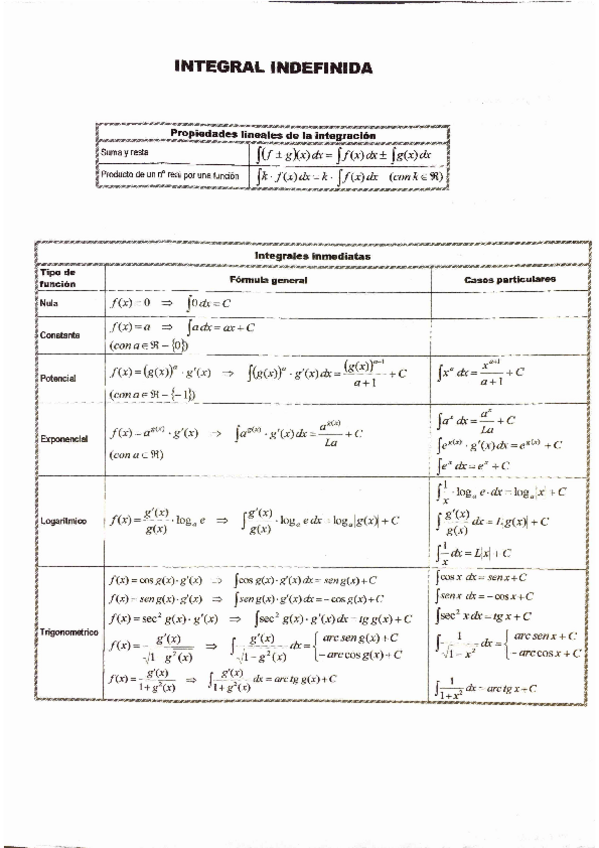 INTEGRAL INDEFINIDA
Propiedades lineales de la integración
Suma y resta ∫(f ± g)(x) dx = ∫f(x) dx ± ∫g(x) dx
Producto de un nº real por una función ∫k · f(x) dx = k · ∫f(x) dx (con k ∈ ℜ)
Integrales inmediatas
Tipo de función Fórmula general Casos particulares
Nula f(x) = 0 ⇒ ∫0 dx = C
Constante f(x) = a ⇒ ∫a dx = ax + C
(con a ∈ ℜ − {0})
Potencial f(x) = (g(x))^a · g'(x) → ∫(g(x))^a · g'(x) dx = (g(x))^(a+1) / (a+1) + C ∫x^a dx = x^(a+1) / (a+1) + C
(con a ∈ ℜ − {−1})
Exponencial f(x) = a^g(x) · g'(x) → ∫a^g(x) · g'(x) dx = a^g(x) / La + C ∫a^x dx = a^x / La + C
(con a ⊂ ℜ) ∫e^g(x) · g'(x) dx = e^g(x) + C
∫e^x dx = e^x + C
Logarítmico f(x) = g'(x)/g(x) · log_a e ⇒ ∫g'(x)/g(x) · log_a e dx = log_a |g(x)| + C ∫1/x · log_a e · dx = log_a |x| + C
∫g'(x)/g(x) dx = L|g(x)| + C
∫1/x dx = L|x| + C
Trigonometrico f(x) = cos g(x) · g'(x) ⇒ ∫cos g(x) · g'(x) dx = sen g(x) + C ∫cos x dx = sen x + C
f(x) = sen g(x) · g'(x) ⇒ ∫sen g(x) · g'(x) dx = − cos g(x) + C ∫sen x dx = − cos x + C
f(x) = sec² g(x) · g'(x) ⇒ ∫sec² g(x) · g'(x) dx = tg g(x) + C ∫sec² x dx = tg x + C
f(x) = g'(x)/√1 g²(x) ⇒ ∫g'(x)/√1 − g²(x) dx = { arc sen g(x) + C − arc cos g(x) + C ∫1/√1 − x² dx = { arc sen x + C − arc cos x + C
f(x) = g'(x)/1 + g²(x) ⇒ ∫g'(x)/1 + g²(x) dx = arc tg g(x) + C ∫1/1 + x² dx = arc tg x + C